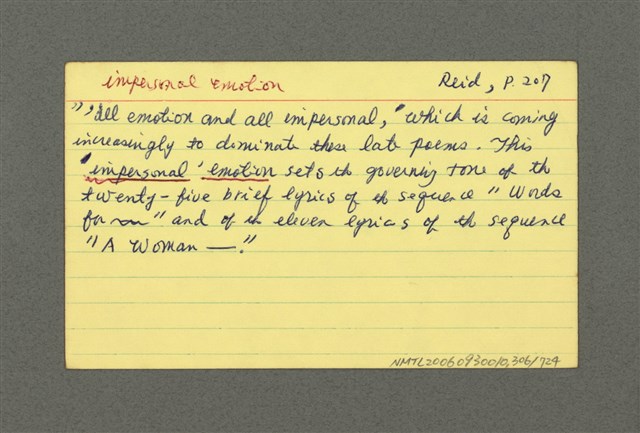 impersonal emotion Reid, P. 207
"'all emotion and all impersonal,' which is coming
increasingly to dominate these late poems. This
'impersonal' emotion sets th governing tone of th
twenty-five brief lyrics of th sequence "Words
for" and of th eleven lyrics of th sequence
"A Woman —."
NMTL20060930010,306/724